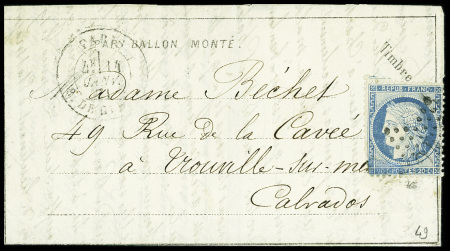 PAR BALLON MONTÉ.
Timbre
Madame Béchet
REPUB. FRANC.
49 Rue de la Caveé
à Trouville-sur-mer
Calvados
49